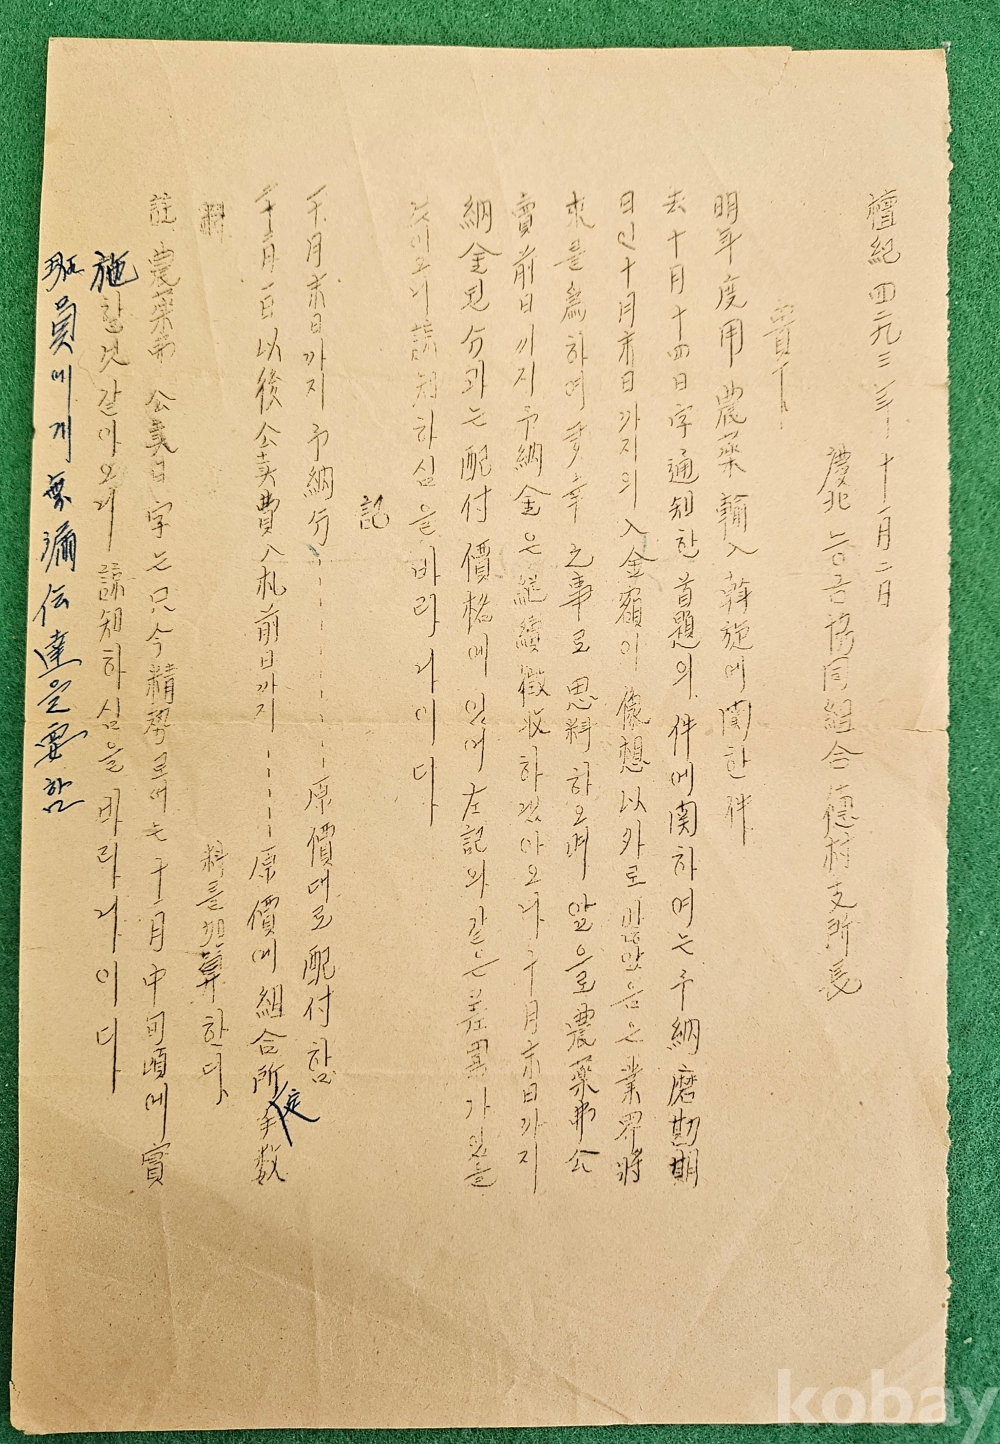 檀紀四二九三年十一月二日
慶北능금協同組合德村支所長
貴下
明年度用農藥輸入斡旋에関한件
去十月十四日字通知한首題의件에関하여는予納磨勘期
日인十月末日까지의入金額이像想以外로많았음은業界將
來를為하여多幸之事로思料하오며앞으로農藥弗公
賣前日까지予納金은継続徵收하겠아오나十月末日까지
納金된分과는配付價格에있어左記와같은差異가있을
것이오니諒知하심을바라나이다
記
十月末日까지予納分 原價대로配付함
十一月一日以後公卖費入札前日까지 原價에組合所定手数
料를加算한다
註 農薬弗公賣日字는只今精勢로써는十一月中旬頃에實
施할것같아오니諒知하심을바라나이다
班員에게無漏伝達을要함
kobay